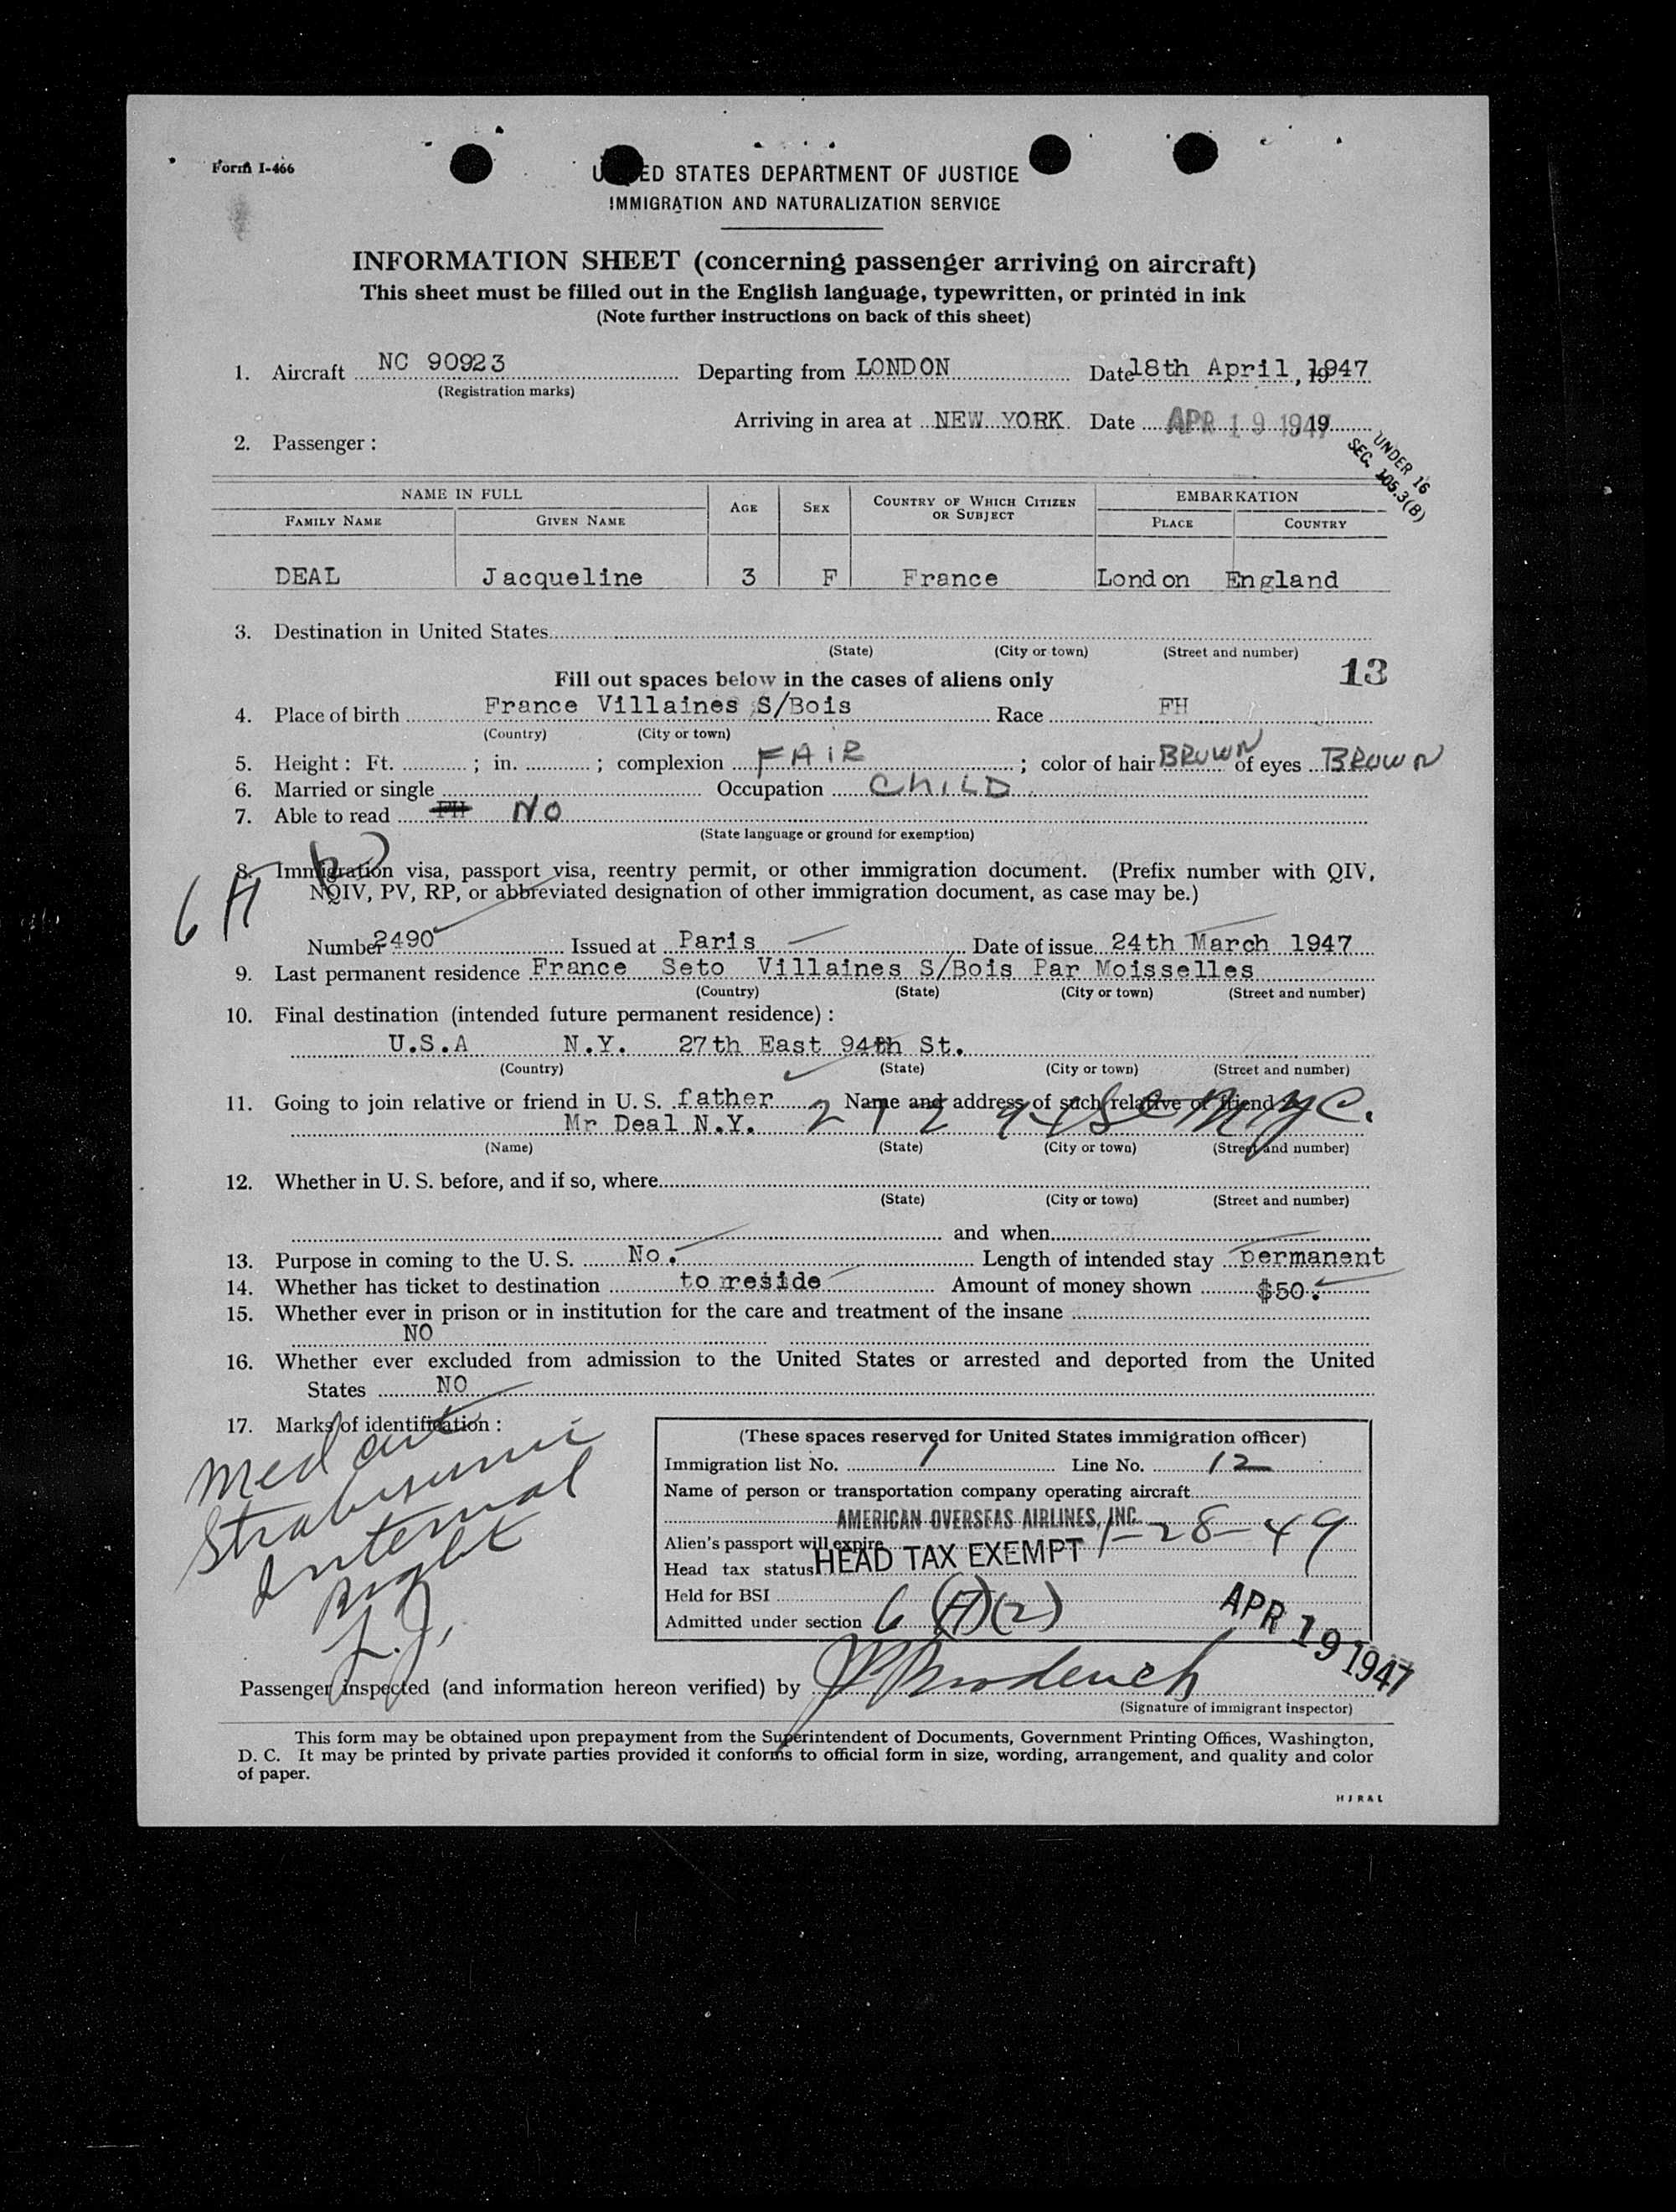 Form I-466
UNITED STATES DEPARTMENT OF JUSTICE
IMMIGRATION AND NATURALIZATION SERVICE
INFORMATION SHEET (concerning passenger arriving on aircraft)
This sheet must be filled out in the English language, typewritten, or printed in ink
(Note further instructions on back of this sheet)
1. Aircraft NC 90923 Departing from LONDON Date 18th April, 1947
(Registration marks)
Arriving in area at NEW YORK Date APR 19 1947, 19
2. Passenger :
UNDER 16
SEC. 105.3(B)
NAME IN FULL AGE SEX COUNTRY OF WHICH CITIZEN OR SUBJECT EMBARKATION
FAMILY NAME GIVEN NAME PLACE COUNTRY
DEAL Jacqueline 3 F France London England
3. Destination in United States
(State) (City or town) (Street and number)
13
Fill out spaces below in the cases of aliens only
4. Place of birth France Villaines S/Bois Race FH
(Country) (City or town)
5. Height : Ft. ; in. ; complexion FAIR ; color of hair BROWN of eyes BROWN
6. Married or single Occupation CHILD
7. Able to read FH NO
(State language or ground for exemption)
8. Immigration visa, passport visa, reentry permit, or other immigration document. (Prefix number with QIV,
NQIV, PV, RP, or abbreviated designation of other immigration document, as case may be.)
6 A
Number 2490 Issued at Paris Date of issue 24th March 1947
9. Last permanent residence France Seto Villaines S/Bois Par Moisselles
(Country) (State) (City or town) (Street and number)
10. Final destination (intended future permanent residence) :
U.S.A N.Y. 27th East 94th St.
(Country) (State) (City or town) (Street and number)
11. Going to join relative or friend in U. S. father Name and address of such relative or friend
Mr Deal N.Y. 27 E 94 St NYC.
(Name) (State) (City or town) (Street and number)
12. Whether in U. S. before, and if so, where
(State) (City or town) (Street and number)
and when
13. Purpose in coming to the U. S. No. Length of intended stay permanent
14. Whether has ticket to destination to reside Amount of money shown $50.
15. Whether ever in prison or in institution for the care and treatment of the insane
NO
16. Whether ever excluded from admission to the United States or arrested and deported from the United
States NO
17. Marks of identification :
Med cert
Strabismus
Internal
Right
L.J.
(These spaces reserved for United States immigration officer)
Immigration list No. 1 Line No. 12
Name of person or transportation company operating aircraft
AMERICAN OVERSEAS AIRLINES, INC.
Alien's passport will expire 1-28-49
Head tax status HEAD TAX EXEMPT
Held for BSI
Admitted under section 6 (A)(2)
APR 19 1947
Passenger inspected (and information hereon verified) by
(Signature of immigrant inspector)
This form may be obtained upon prepayment from the Superintendent of Documents, Government Printing Offices, Washington,
D. C. It may be printed by private parties provided it conforms to official form in size, wording, arrangement, and quality and color
of paper.
HJR&L